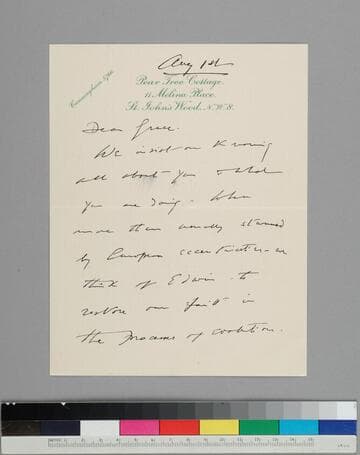 Aug 1st
Cunningham 5700
Pear Tree Cottage.
11 Melina Place.
St. John's Wood, N.W. 8.
Dear Grace.
We insist on knowing
all about you & what
you are doing. When
more than usually stunned
by European eccentricities we
think of Edwin to
restore our faith in
the processes of evolution.